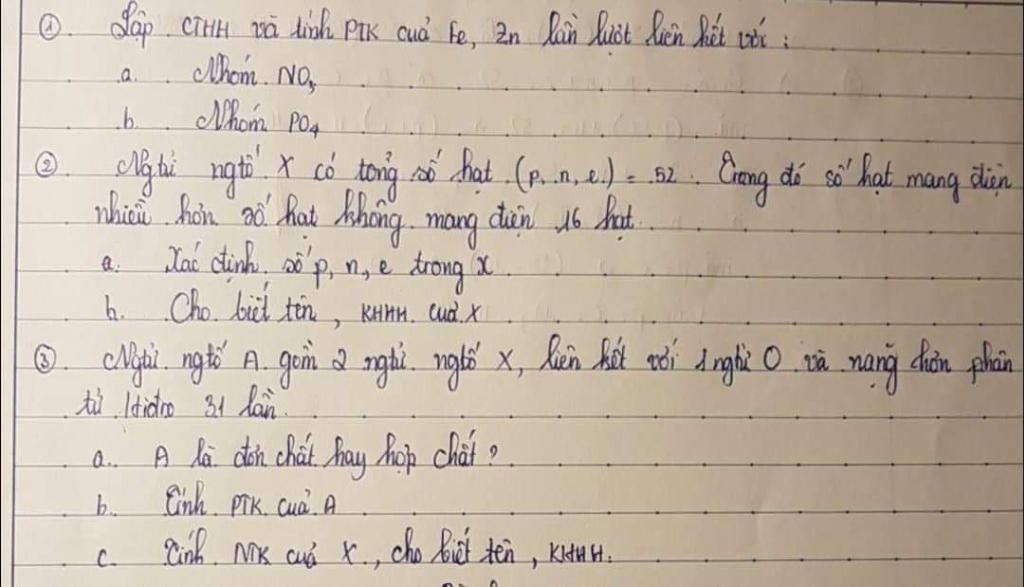 ① Lập CTHH và tính PTK của Fe, Zn lần lượt liên kết với :
a. Nhóm NO₃
b. Nhóm PO₄
② Ngtử ngtố X có tổng số hạt (p, n, e) = 52. Trong đó số hạt mang điện
nhiều hơn số hạt không mang điện 16 hạt.
a. Xác định số p, n, e trong X
b. Cho biết tên, KHHH của X
③ Ngtử ngtố A gồm 2 ngtử ngtố X, liên kết với 1 nghtử O và nặng hơn phân
tử Hidro 31 lần.
a. A là đơn chất hay hợp chất ?
b. Tính PTK của A
c. Tính NTK của X, cho biết tên, KHHH.